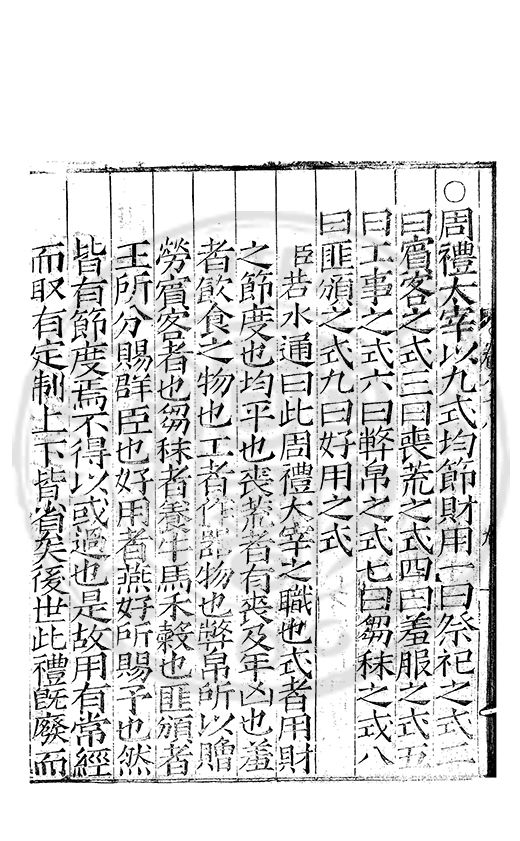 ○周禮太宰以九式均節財用一曰祭祀之式二
曰賓客之式三曰喪荒之式四曰羞服之式五
曰工事之式六曰幣帛之式七曰芻秣之式八
曰匪頒之式九曰好用之式
臣若水通曰此周禮大宰之職也式者用財
之節度也均平也喪荒者有喪及年凶也羞
者飲食之物也工者作器物也幣帛所以贈
勞賓客者也芻秣者養牛馬禾穀也匪頒者
王所分賜群臣也好用者燕好所賜予也然
皆有節度焉不得以或過也是故用有常經
而取有定制上下皆省矣後世此禮旣廢而